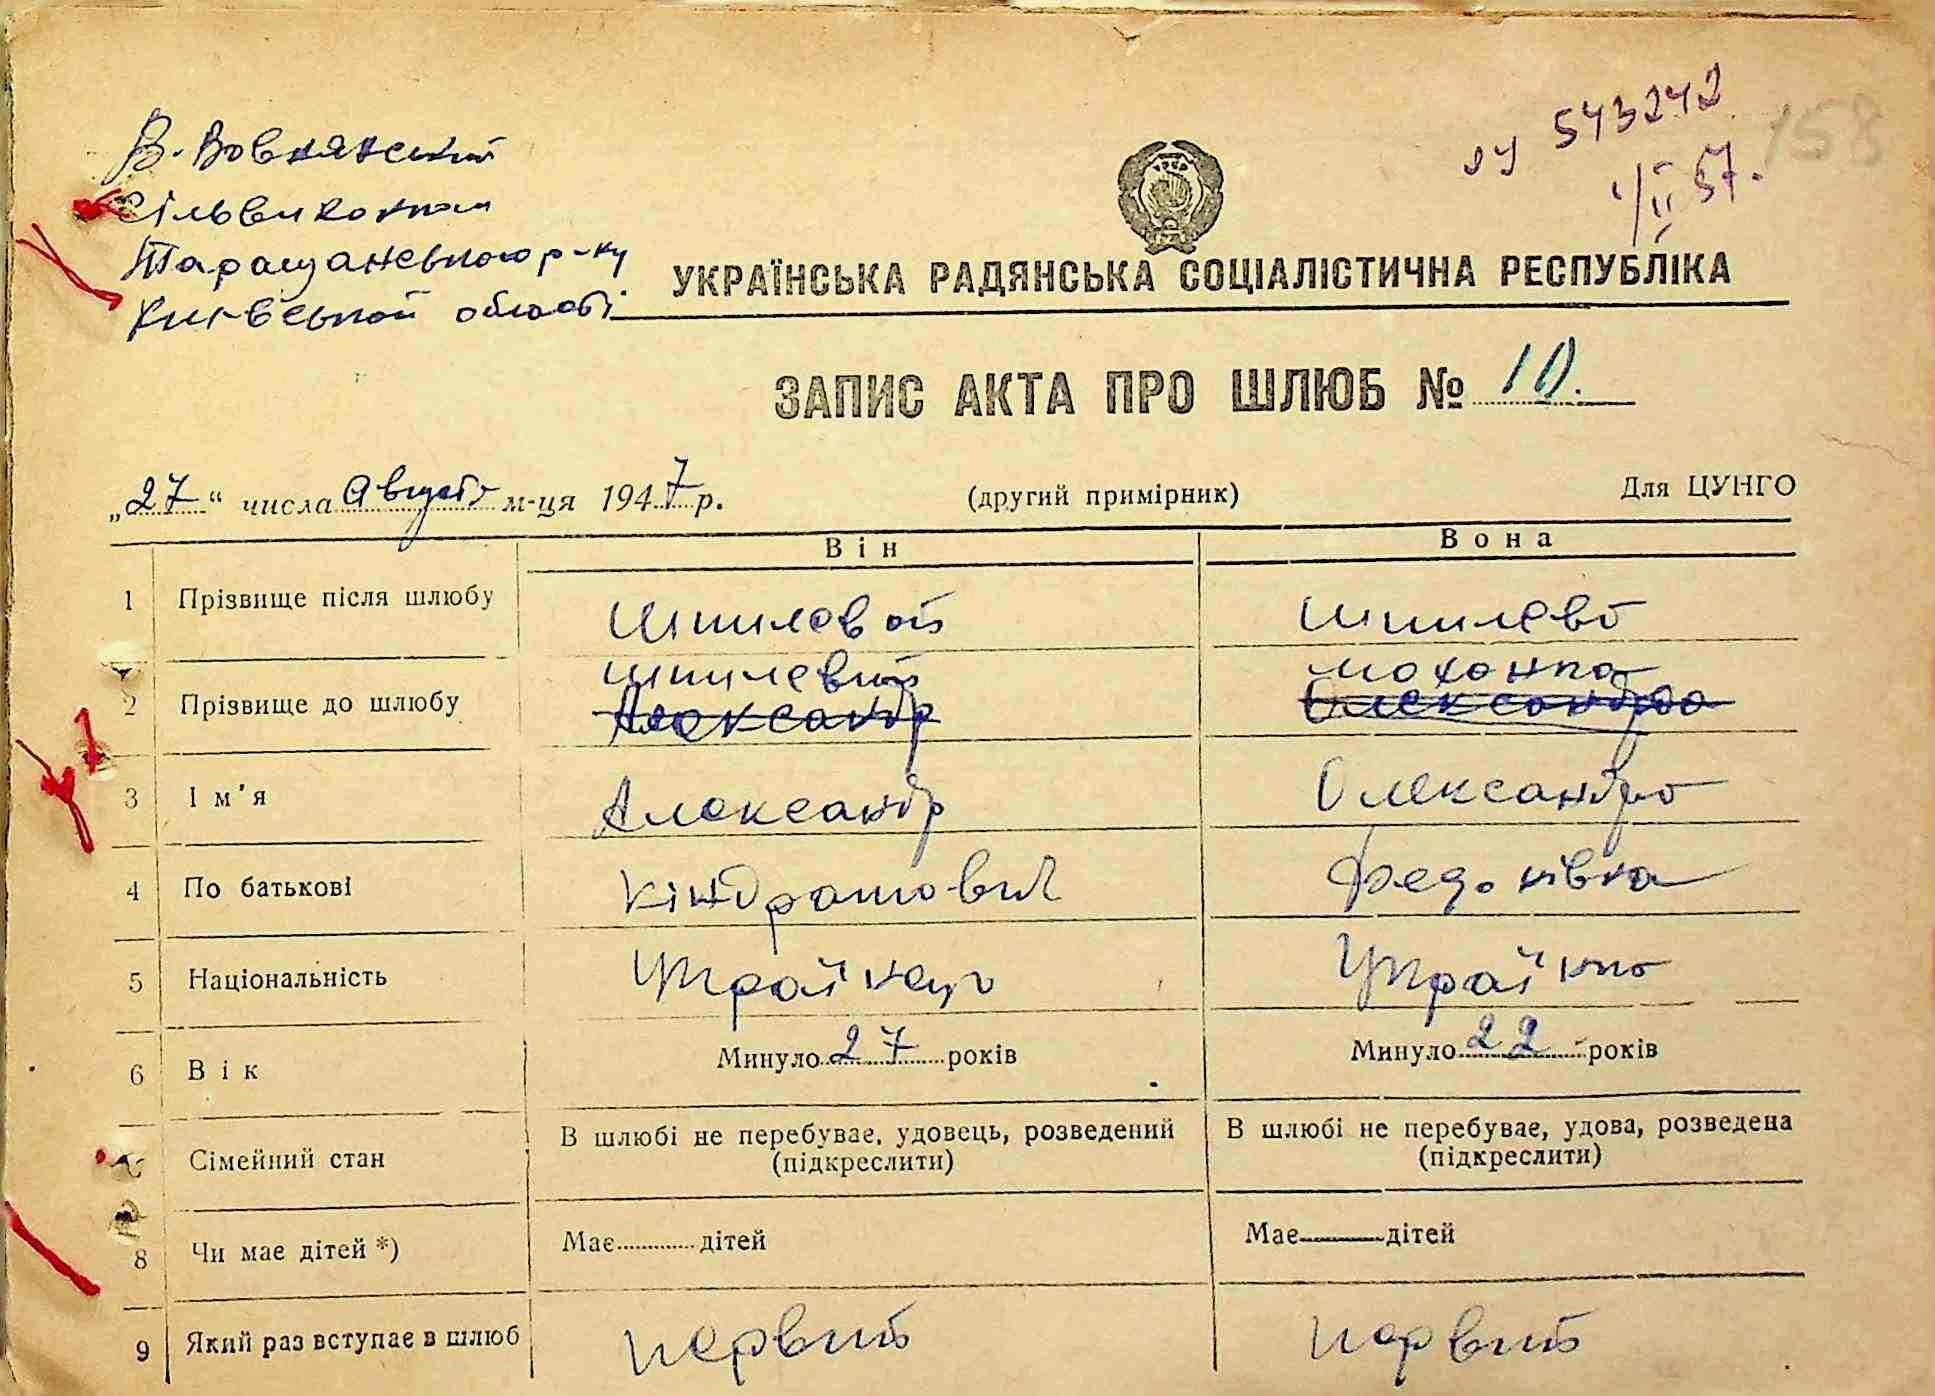 В. Вовнянський
сільвиконком
Таращанського р-ну
Київської області
УУ 543242
1/II 57.
158
УКРАЇНСЬКА РАДЯНСЬКА СОЦІАЛІСТИЧНА РЕСПУБЛІКА
ЗАПИС АКТА ПРО ШЛЮБ № 10.
„27“ числа Августа м-ця 1947 р. (другий примірник) Для ЦУНГО
Він Вона
1 Прізвище після шлюбу Шпилевой Шпилева
2 Прізвище до шлюбу Шпилевий Александр Моханка Олександра
3 Ім'я Александр Олександра
4 По батькові Кіндратович Федоківна
5 Національність Українец Українка
6 Вік Минуло 27 років Минуло 22 років
Сімейний стан В шлюбі не перебуває, удовець, розведений (підкреслити) В шлюбі не перебуває, удова, розведена (підкреслити)
8 Чи має дітей *) Має дітей Має дітей
9 Який раз вступає в шлюб первий первий